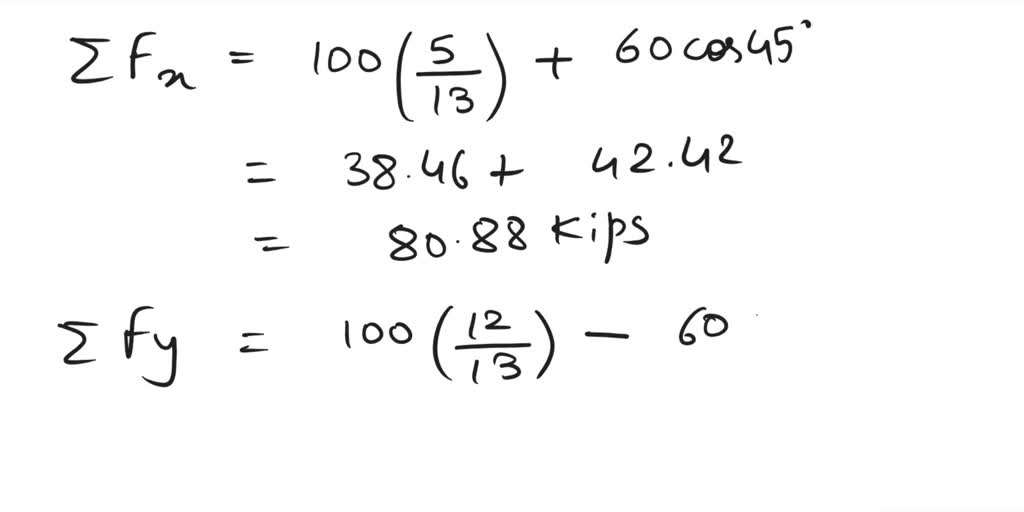 ΣFx = 100(5/13) + 60cos45°
= 38.46 + 42.42
= 80.88 Kips
Σfy = 100(12/13) - 60